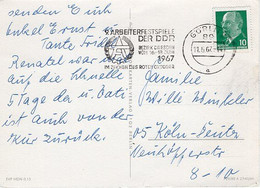 senden Euch
Onkel Ernst
Tante Frieda
Renatel war
auf die Schnelle
5 Tage da, u. Vati
ist auch von der
Kur zurück.
9. ARBEITERFESTSPIELE
DER DDR
BEZIRK DRESDEN
VOM 16.-18. JUNI
1967
IM ZEICHEN DES ROTEN OKTOBER
GÖRLITZ
10
Familie
Willi Winkler
05 Köln-Deutz
Neuhöfferstr
8-10